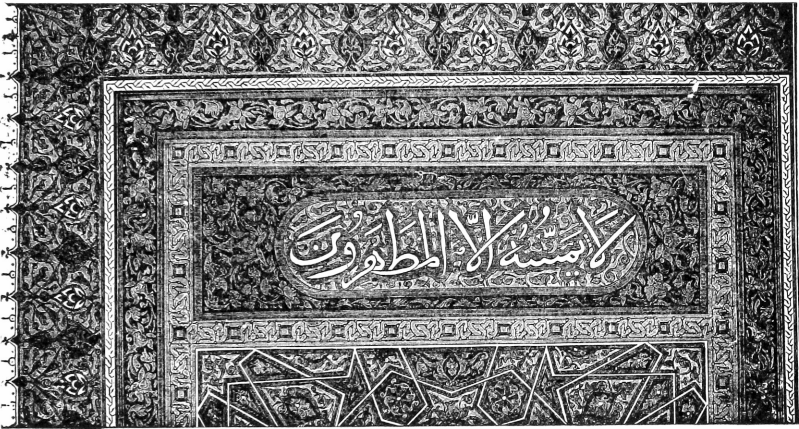 لَا يَمَسُّهُ إِلَّا الْمُطَهَّرُونَ